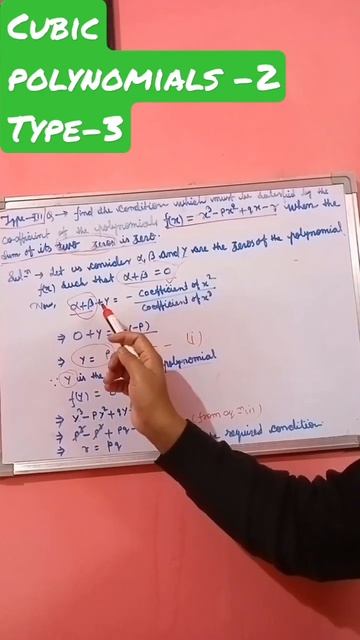 CUBIC
POLYNOMIALS -2
TYPE-3
Type-III/Q. → find the condition which must be satisfied by the
coefficient of the polynomials f(x) = x³ - px² + qx - r when the
sum of its two zeros is zero.
Sol.ⁿ → Let us consider α, β and γ are the zeros of the polynomial
f(x) such that α+β = 0
Now, α+β+γ = - coefficient of x² / coefficient of x³
⇒ 0 + γ = (-p)
⇒ γ = (i)
∵ γ is polynomial
f(γ) =
⇒ γ³ - pγ² + qγ (from eq.
⇒ p³ - p³ + pq required condition.
⇒ r = pq